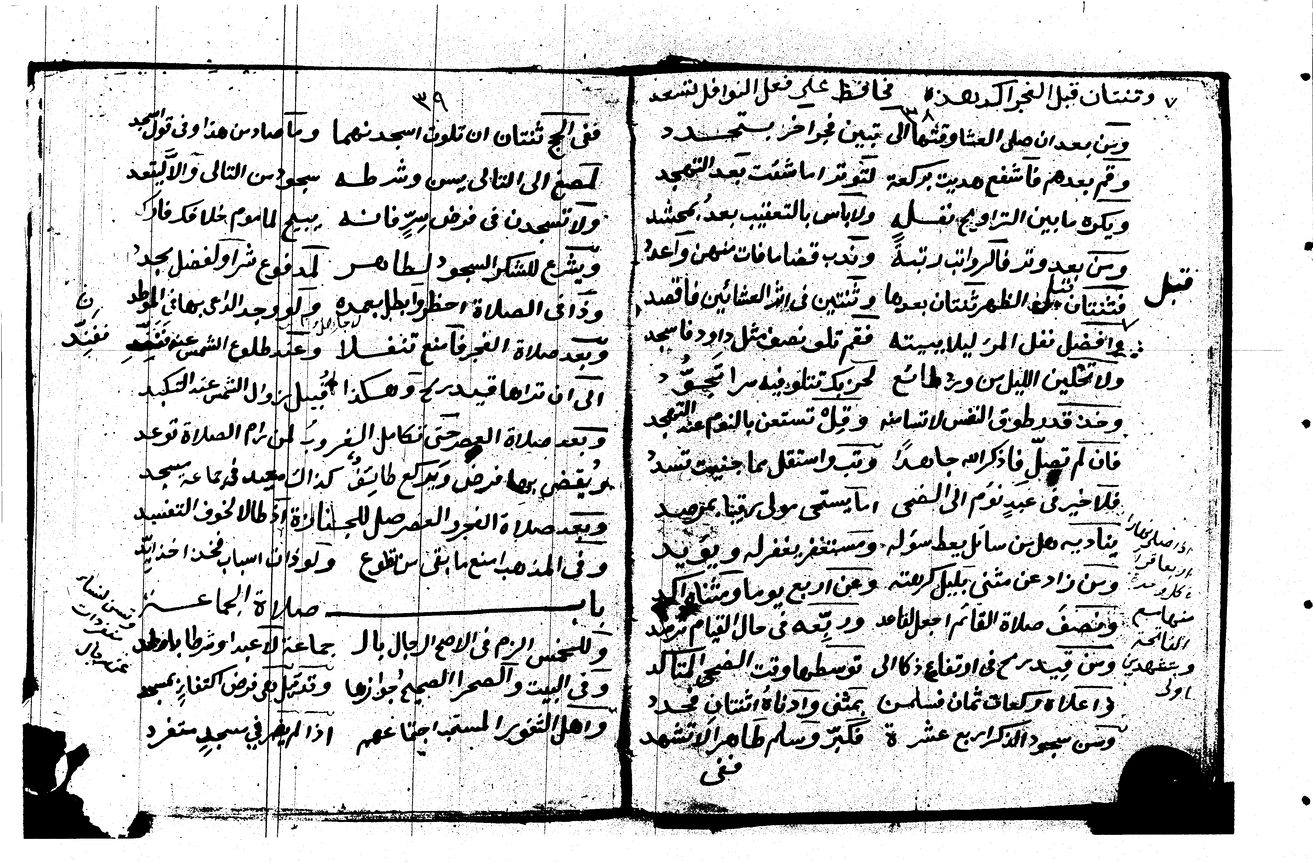 وثنتان قبل الفجر اكد بعده فحافظ على فعل النوافل تسعد
٣٨
وسن بعد ان صلى العشا وقتها الى تبين فجر اخر يتجدد
وقم بعدهم فاشفع هديت بركعة لتوتر اما شئت بعد التهجد
ويكره ما بين التراويح نفله ولا باس بالتعقيب بعد بمحشد
وسن بعد وتر فالرواتب رتبة وندب قضا ما فات منهن واعدد
فثنتان قبل الظهر ثنتان بعدها وثنتين في اثر العشائين فاقصد
قبل
وافضل نفل المرء ليلا ببيته فقم تلو نصف مثل داود فاسجد
ولا تخلين الليل من ورد طائع
وخذ قدر طوق النفس لا تسامنه وقل تستعن بالنوم عند التهجد
فان لم تصل فاذكر الله جاهدا وتب واستقل مما جنيت تسدد
فلا خير في عبد نؤم الى الضحى اما يستحى مولى رقيبا بمرصد
يناديه هل من سائل يعط سؤله ومستغفر يغفر له ويؤيد
ومن زاد عن مثنى بليل كرهته وعن اربع يوما ومثناه اكد
ونصف صلاة القائم اجعل لقاعد وربعه في حال القيام
وسن قيد رمح في ارتفاع ذكا الى توسطها وقت الضحى المتاكد
ذا اعلاه ركعات ثمان فسلمن بمثنى وادناه اثنتان فجدد
وسن سجود الذكر اربع عشرة فكبر وسلم طاهرا لا تشهد
ففي
٣٩
ففي الحج ثنتان ان تلوت اسجدنهما وما صاد من هذا وفي قول اسجد
لمصغ الى التالي يسن وشرطه سجود من التالي
ولا تسجدن في فرض سر فانه يبيح لماموم
ويشرع للشكر السجود لطاهر لمدفوع شر او لفضل مجدد
وذا في الصلاة احظر وابطل بعمده ولو وجد الداعي بها في
وبعد صلاة الفجر فامنع تنفلا وعند طلوع الشمس
الى ان تراها قيد رمح وهكذا قبيل زوال الشمس عند التكبد
وبعد صلاة العصر حتى تكامل الغروب لمن رام الصلاة توعد
ويقضى بها فرض ويركع طائف كذاك معيد في جماعة مسجد
وبعد صلاة الفجر والعصر صل للجنازة اذ طالا لخوف التفسد
وفي المذهب امنع ما بقي من تطوع ولو ذات اسباب فخذ اخذ
باب صلاة الجماعة
وللخمس الزم في الاصح الرجال بال جماعة لا عبدا وشرطا
وفي البيت والصحرا الصحيح جوازها وقد قيل بل فرض اكتفاء بمسجد
واهل الثغور المستحب اجتماعهم اذا لم يضر في مسجد متفرد
وتسن لنساء
منفردات
عند رجال